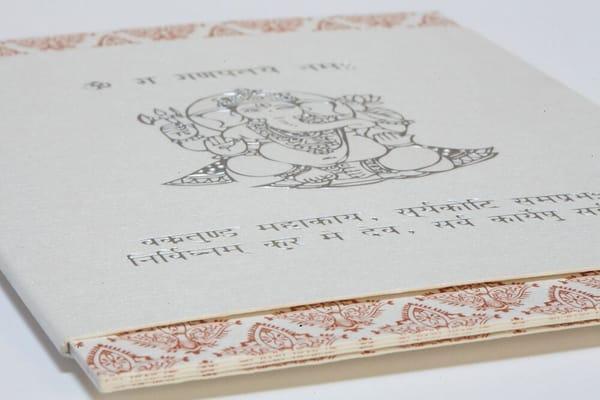 ॐ गं गणपतये नमः
वक्रतुण्ड महाकाय, सूर्यकोटि समप्रभः
निर्विघ्नम कुरू मे देव, सर्व कार्येषु